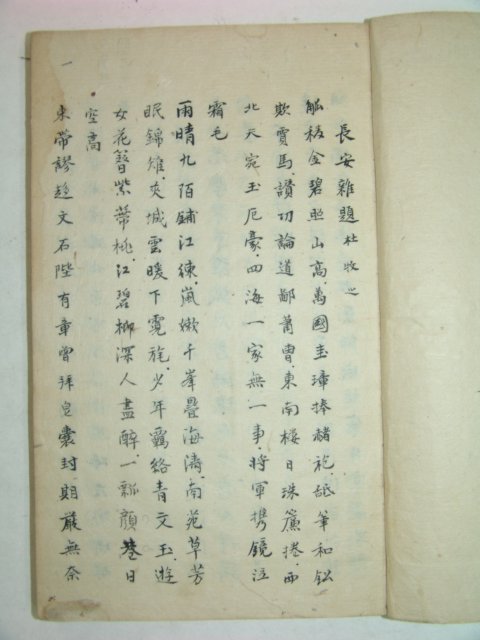 長安雜題 杜牧之
觚稜金碧照山高萬國圭璋捧赭袍舐筆和鈆
欺賈馬讃功論道鄙蕭曹東南樓日珠簾捲西
北天宛玉厄豪四海一家無一事將軍携鏡泣
霜毛
雨晴九陌鋪江練嵐嫩千峯疊海濤南苑草芳
眠錦雉夾城雲暖下霓旄少年羈絡青文玉遊
女花簪紫蒂桃江碧柳深人盡醉一瓢顏巷日
空高
束帶謬趍文石陛有章曾拜皂囊封期嚴無奈